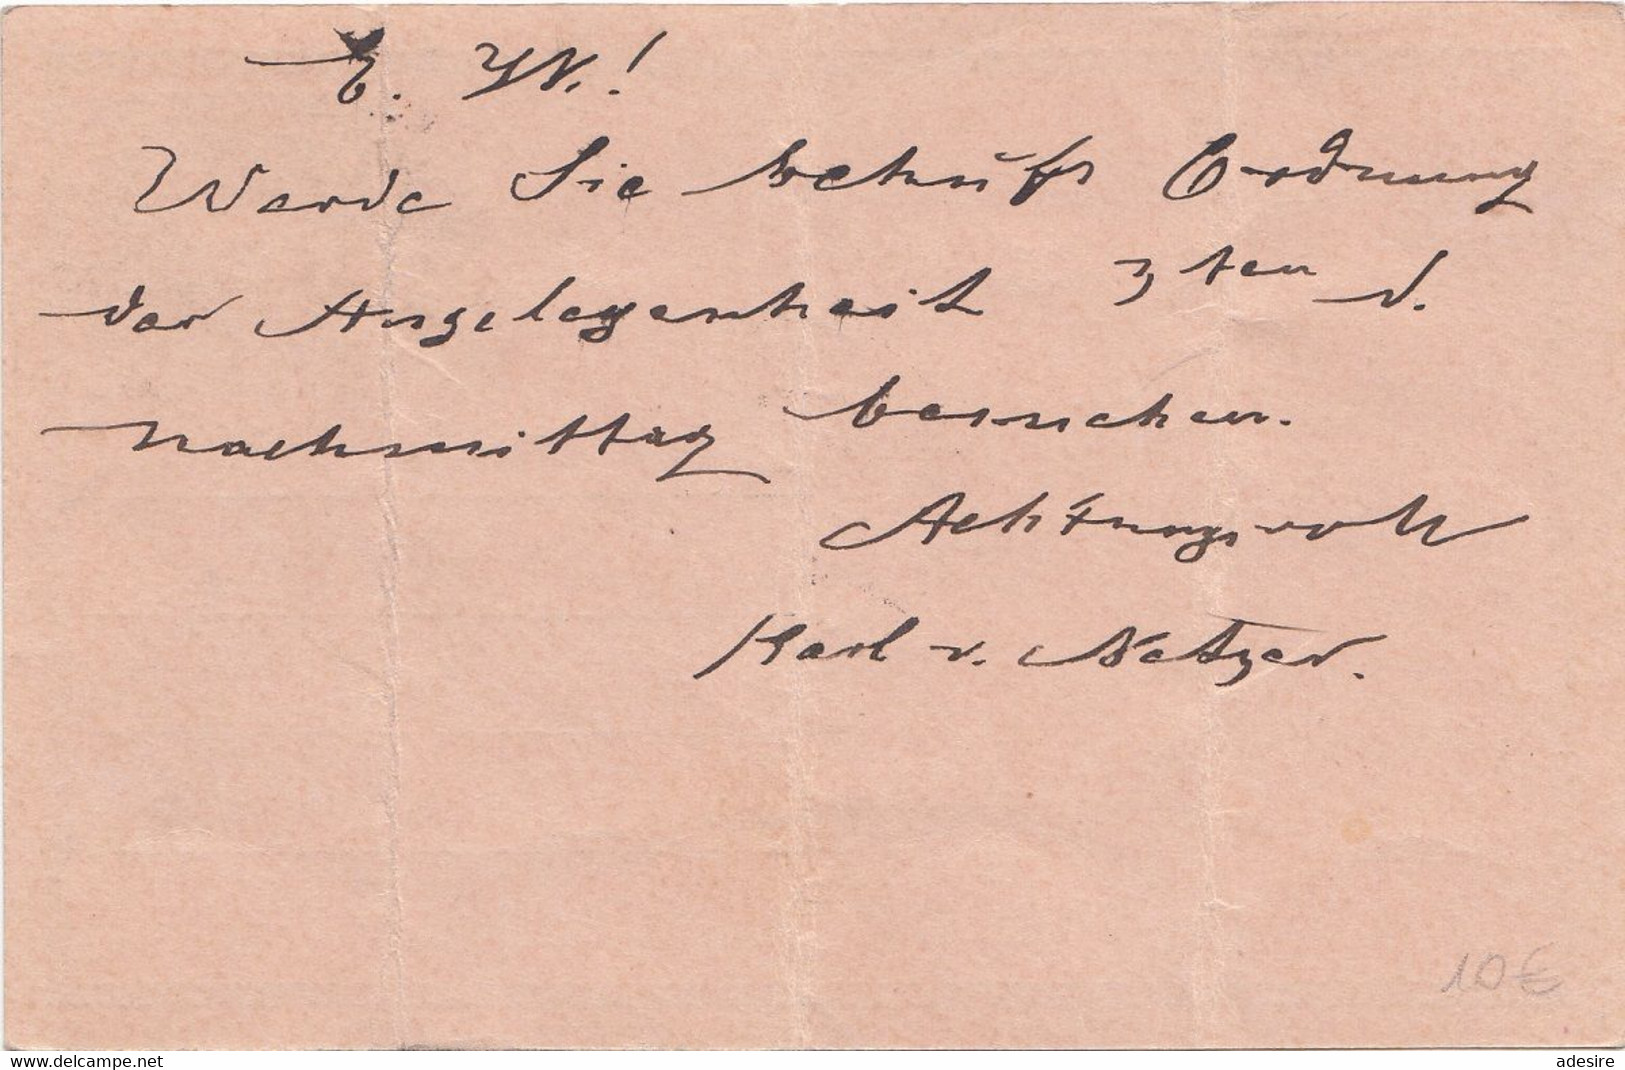 E. W.!
Werde Sie behufs Ordnung
der Angelegenheit 3ten d.
nachmittag besuchen.
Achtungsvoll
Karl v. Netzer.
10€
www.delcampe.net
adesire